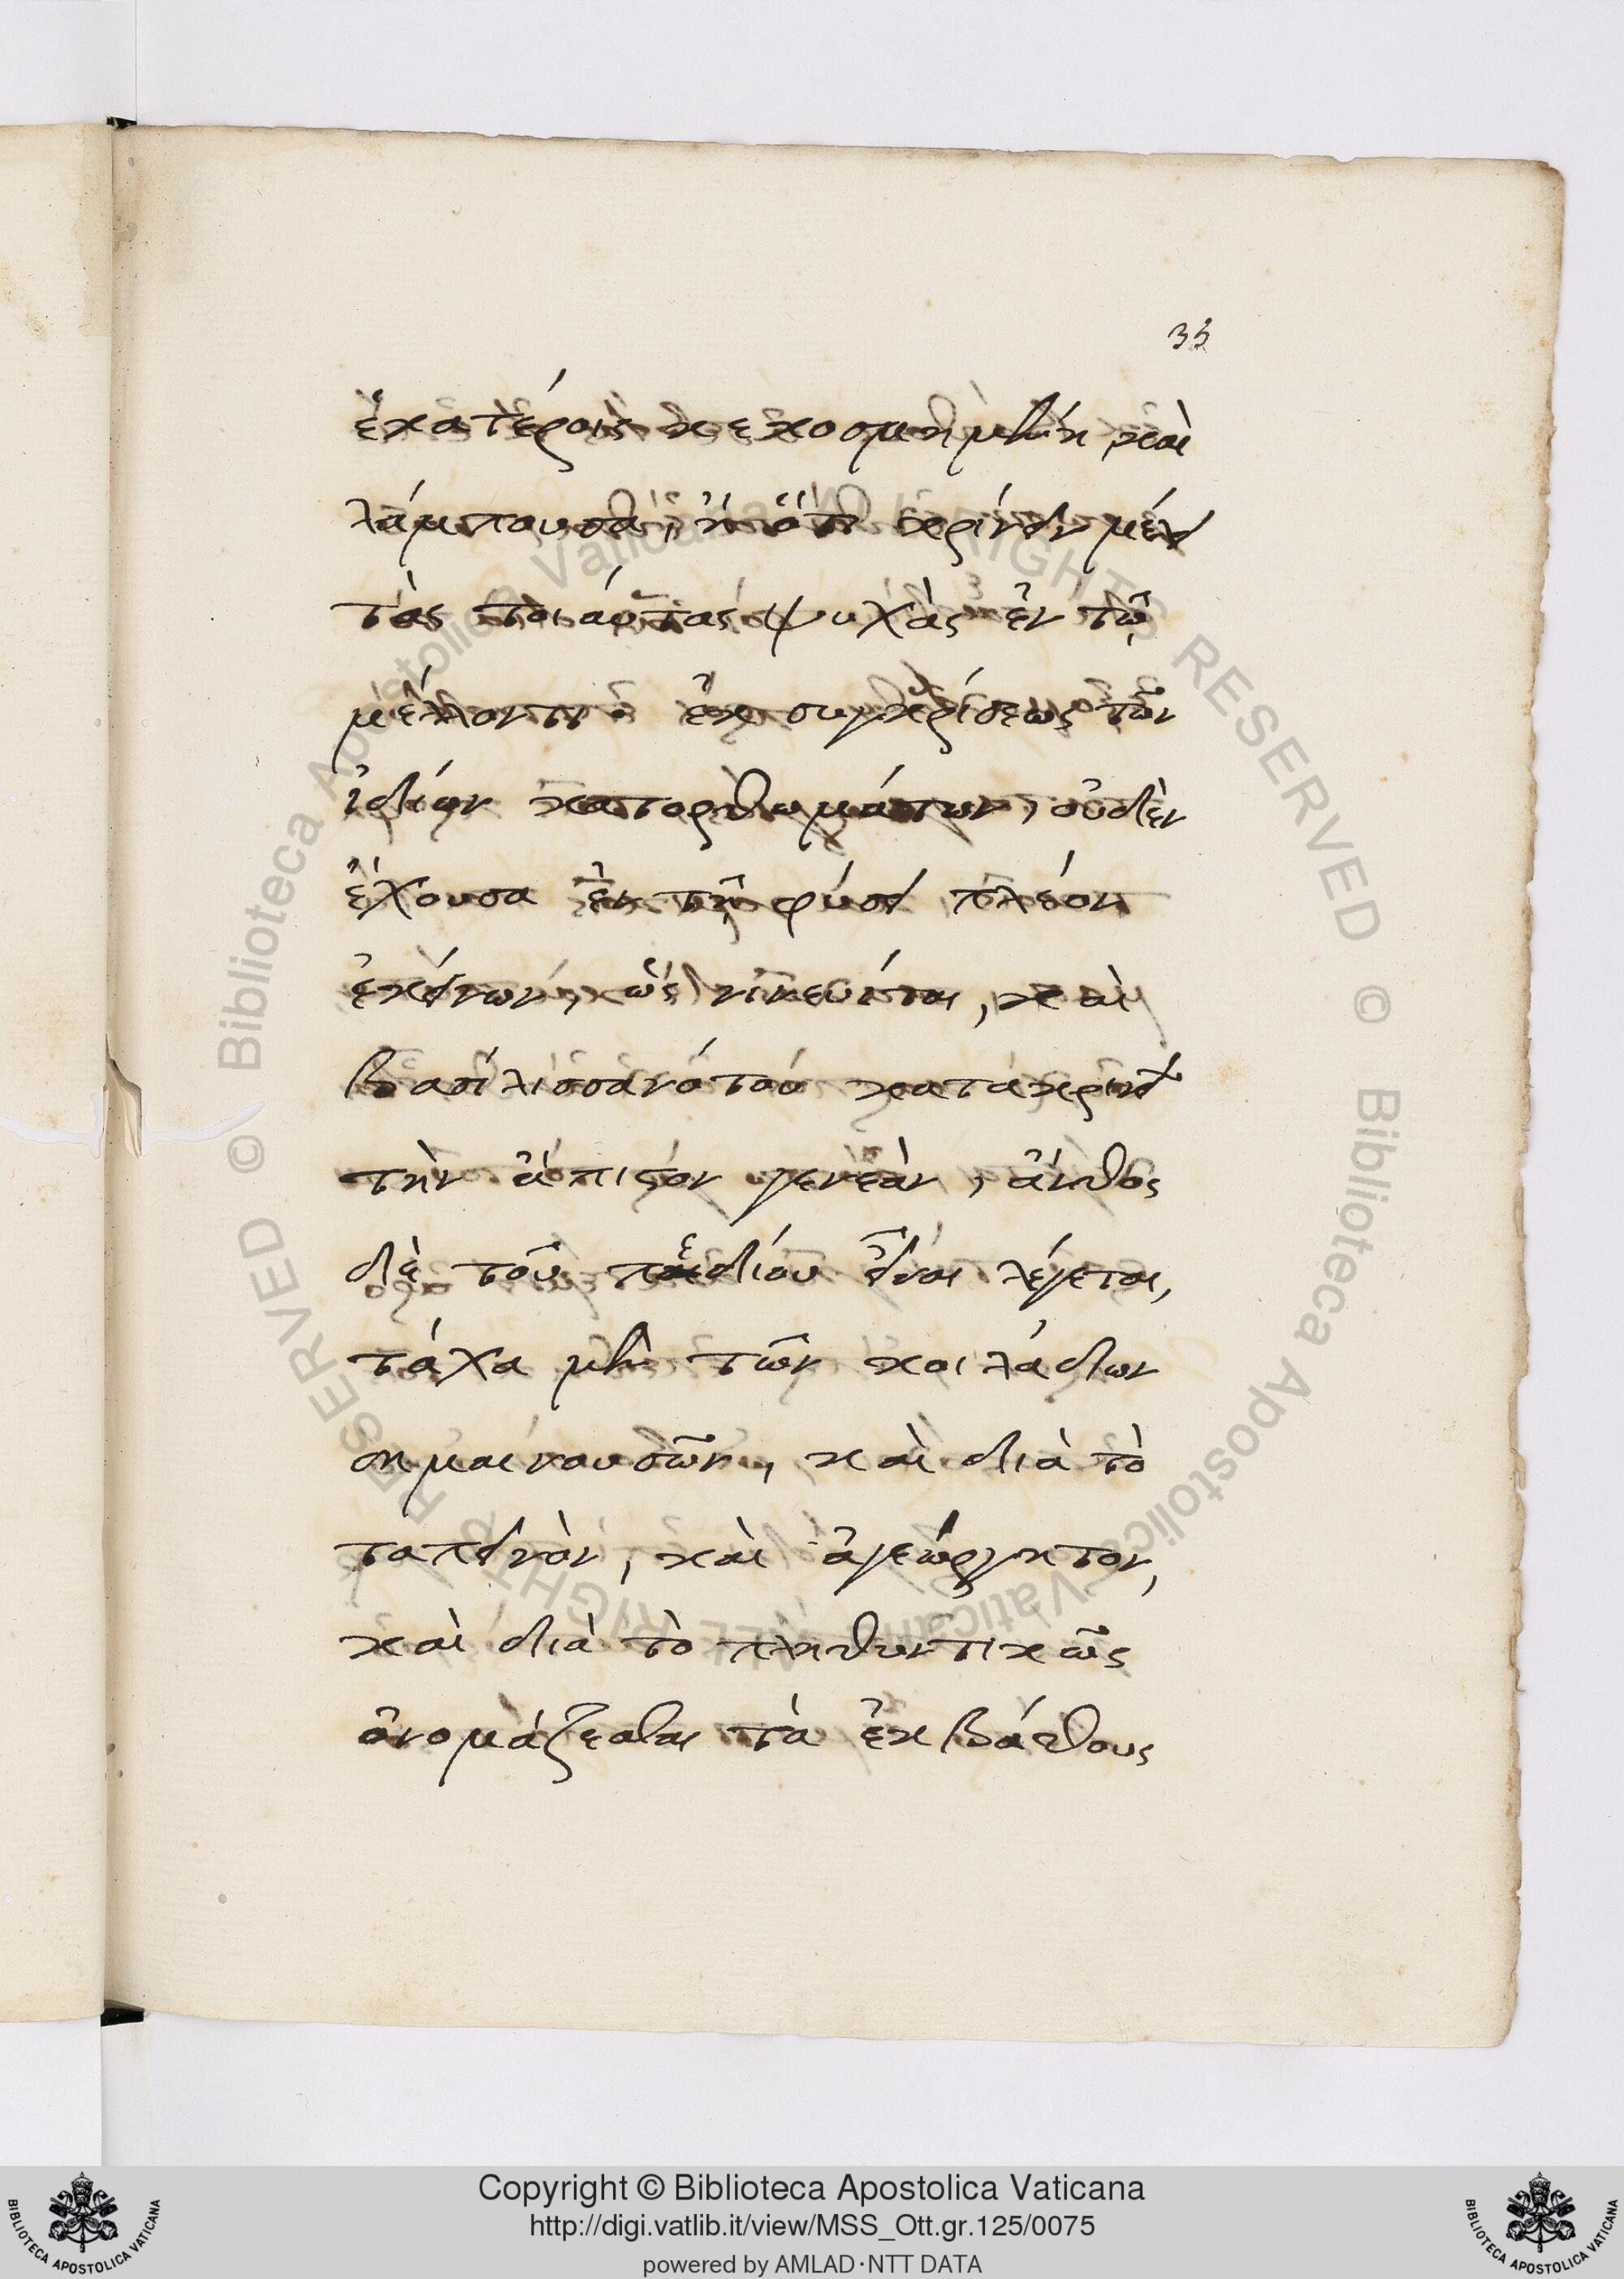 35
ἑκατέροις κεκοσμημένη καὶ
λάμπουσα, ἢ ὅτι κρίνειν μέλει
τὰς τοιάυτας ψυχὰς ἐν τῷ
μέλλοντι ἐκ συγκρίσεως τῶν
ἰδίων κατορθωμάτων, οὐδὲν
ἔχουσα ἐν τῇ φύσει πλέον
ἐκείνων, ὡς νινευίται, καὶ
βασίλισσα νότου κατακρινεῖ
τὴν ἄπιστον γενεὰν, ἄνθος
δὲ τοῦ πεδίου εἶναι λέγεται,
τάχα μὲν τῶν κοιλάδων
σημαινουσῶν, καὶ διὰ τὸ
ταπεινὸν, καὶ ἀγεώργητον,
καὶ διὰ τὸ πληθυντικῶς
ὀνομάζεσθαι τὰ ἐκ βάθους
Copyright © Biblioteca Apostolica Vaticana
http://digi.vatlib.it/view/MSS_Ott.gr.125/0075
powered by AMLAD·NTT DATA
BIBLIOTECA APOSTOLICA VATICANA
BIBLIOTECA APOSTOLICA VATICANA
© Biblioteca Apostolica Vaticana ALL RIGHTS RESERVED
© Biblioteca Apostolica Vaticana ALL RIGHTS RESERVED